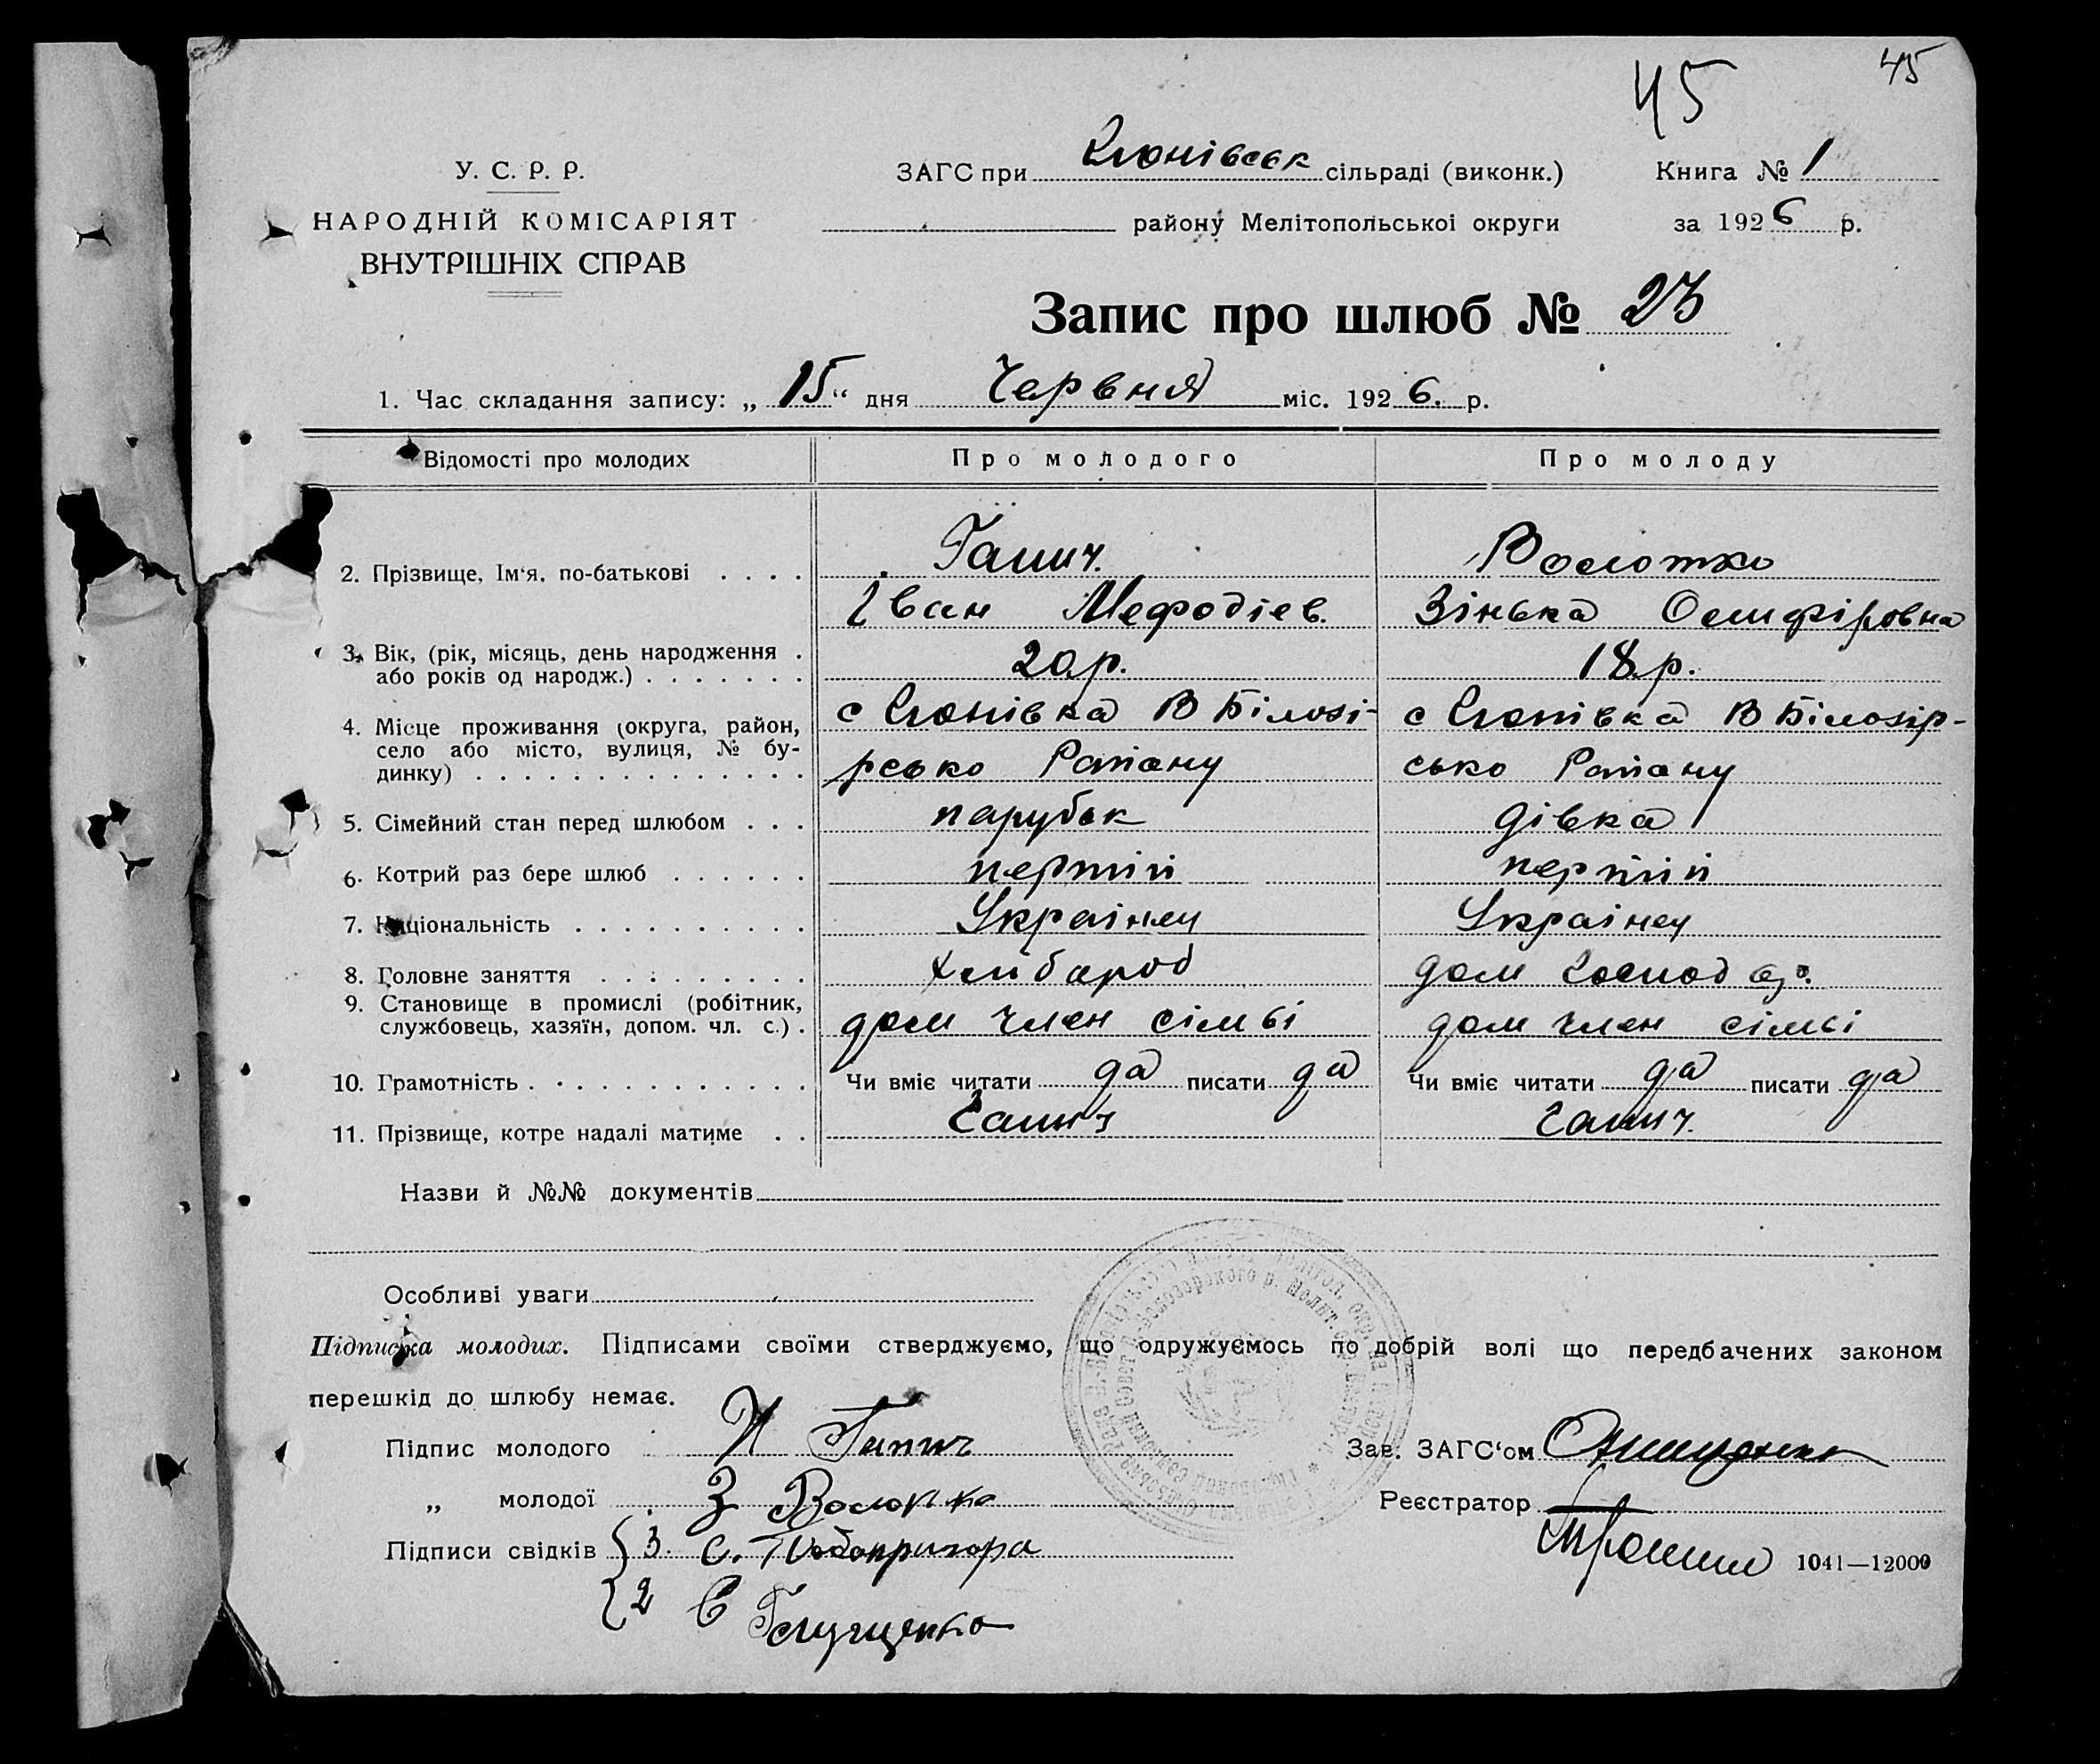 45
45
У. С. Р. Р.
НАРОДНІЙ КОМІСАРІЯТ
ВНУТРІШНІХ СПРАВ
ЗАГС при сільраді (виконк.)
району Мелітопольскоі округи
Книга № 1
за 1926 р.
Запис про шлюб № 23
1. Час складання запису: „ 15 “ дня Червня міс. 1926. р.
Відомості про молодих Про молодого Про молоду
2. Прізвище, Ім‘я, по-батькові . . . . Волотко
Іван Мефодієв. Зінька
3. Вік, (рік, місяць, день народження . або років од народж.) . . . . . . . 20 р. 18 р.
4. Місце проживання (округа, район, село або місто, вулиця, № бу-динку) . . . . . . . . . . . . . . .
с В Білозі- с В Білозір-
рсько Раіону сько Раіону
5. Сімейний стан перед шлюбом . . . парубок дівка
6. Котрий раз бере шлюб . . . . . . перший перший
7. Національність . . . . . . . . . . Українец Українец
8. Головне заняття . . . . . . . . . дом
9. Становище в промислі (робітник, службовець, хазяїн, допом. чл. с.) . дом член сімьі дом член сімьі
10. Грамотність . . . . . . . . . . . . Чи вміє читати да писати да Чи вміє читати да писати да
11. Прізвище, котре надалі матиме . .
Назви й №№ документів
Особливі уваги
Підписка молодих. Підписами своїми стверджуємо, що одружуємось по добрій волі що передбачених законом
перешкід до шлюбу немає.
Підпис молодого И
„ молодої З Волотко
Підписи свідків 3. С. Подопригора
2 Є Глущенко
Зав. ЗАГС‘ом
Реєстратор
1041—12000